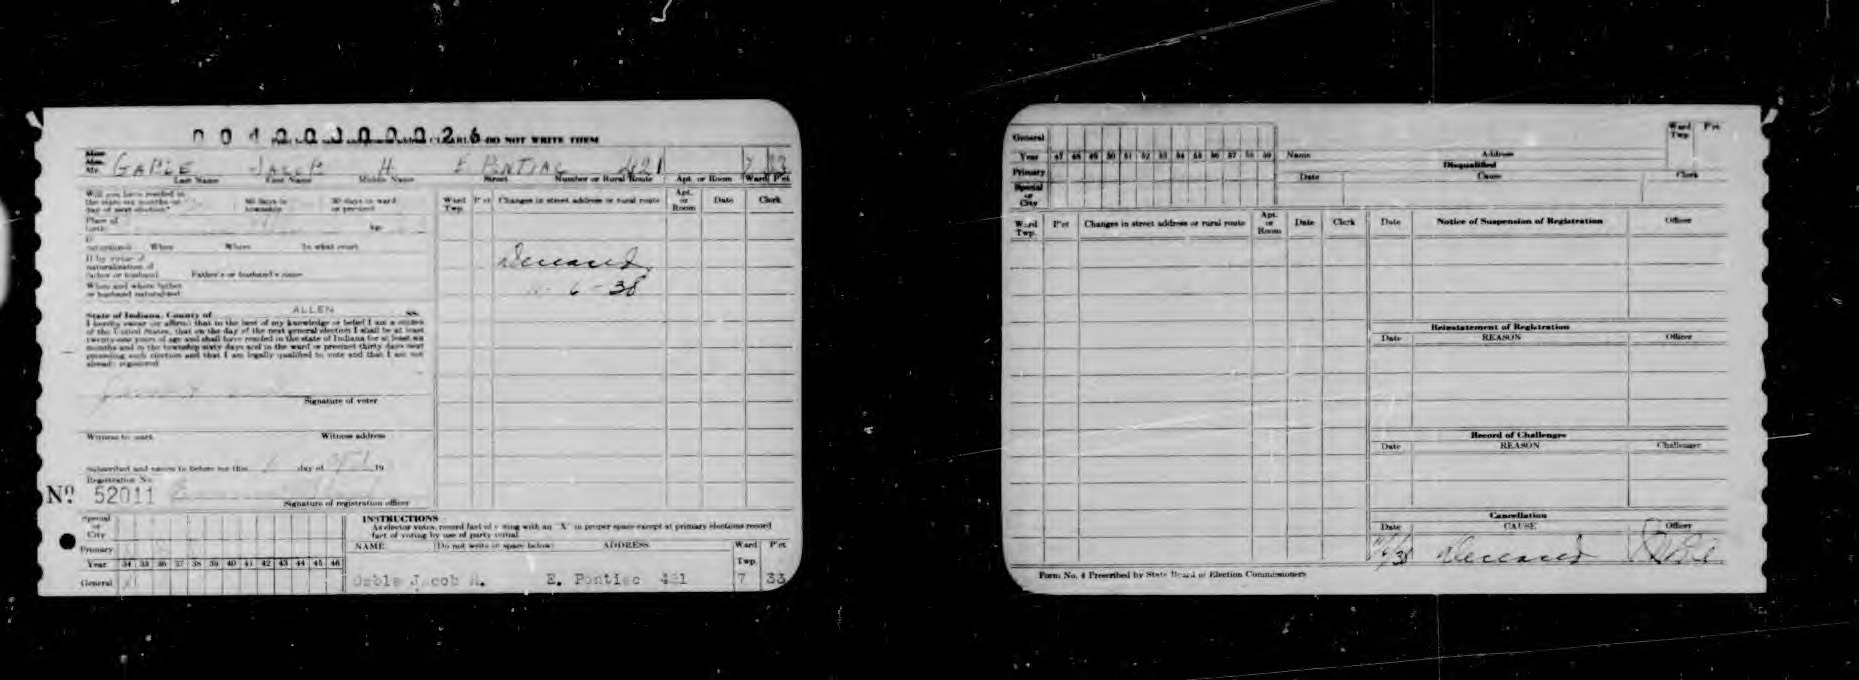 DO NOT WRITE THEM
Mr. GABLE JACOB H. E. PONTIAC 421 7 33
Last Name First Name Middle Name Street Number or Rural Route Apt. or Room Ward P'ct
Will you have resided in
the state six months on
day of next election?
60 days in
township
30 days in ward
or precinct
Place of
birth
Age
If
naturalized When Where In what court
If by virtue of
naturalization of
father or husband Father's or husband's name
When and where father
or husband naturalized
State of Indiana, County of ALLEN ss.
I hereby swear (or affirm) that to the best of my knowledge or belief I am a citizen
of the United States, that on the day of the next general election I shall be at least
twenty-one years of age and shall have resided in the state of Indiana for at least six
months and in the township sixty days and in the ward or precinct thirty days next
preceding such election and that I am legally qualified to vote and that I am not
already registered
Signature of voter
Witness to mark Witness address
Subscribed and sworn to before me this day of 19
Registration No.
Nº 52011
Signature of registration officer
Ward
Twp.
P'ct
Changes in street address or rural route
Apt.
or
Room
Date
Clerk
Deceased
6-38
Special
or
City
Primary
Year 34 35 36 37 38 39 40 41 42 43 44 45 46
General
INSTRUCTIONS
As elector votes, record fact of voting with an "X" in proper space except at primary elections record
fact of voting by use of party initial
NAME (Do not write in space below) ADDRESS Ward P'ct
Twp.
Gable Jacob H. E. Pontiac 421 7 33
General
Year 47 48 49 50 51 52 53 54 55 56 57 58 59
Primary
Special
or
City
Name Address
Ward
Twp.
P'ct
Disqualified
Date Cause Clerk
Ward
Twp.
P'ct
Changes in street address or rural route
Apt.
or
Room
Date
Clerk
Date Notice of Suspension of Registration Officer
Reinstatement of Registration
Date REASON Officer
Record of Challenges
Date REASON Challenger
Cancellation
Date CAUSE Officer
11/6/38 Deceased
Form No. 4 Prescribed by State Board of Election Commissioners